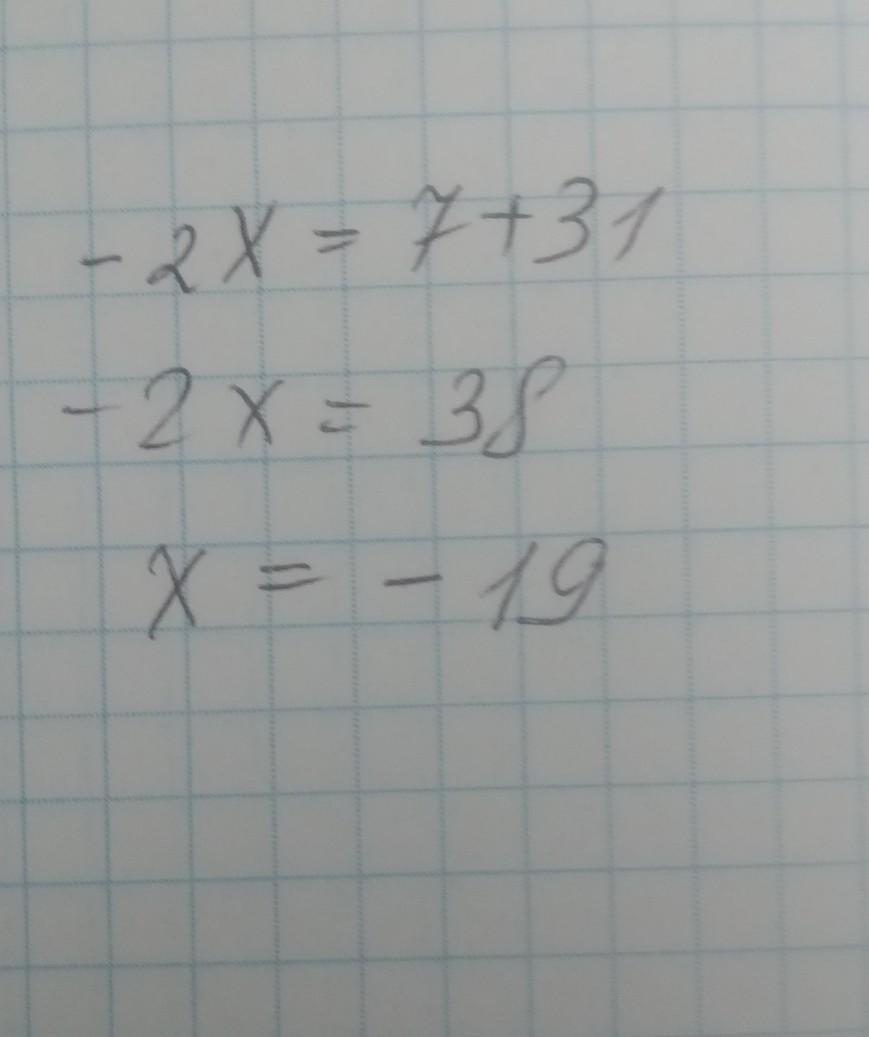 -2x = 7+31
-2x = 38
x = -19